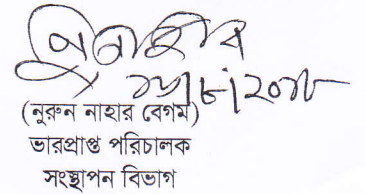 (নুরুন নাহার বেগম)
ভারপ্রাপ্ত পরিচালক
সংস্থাপন বিভাগ